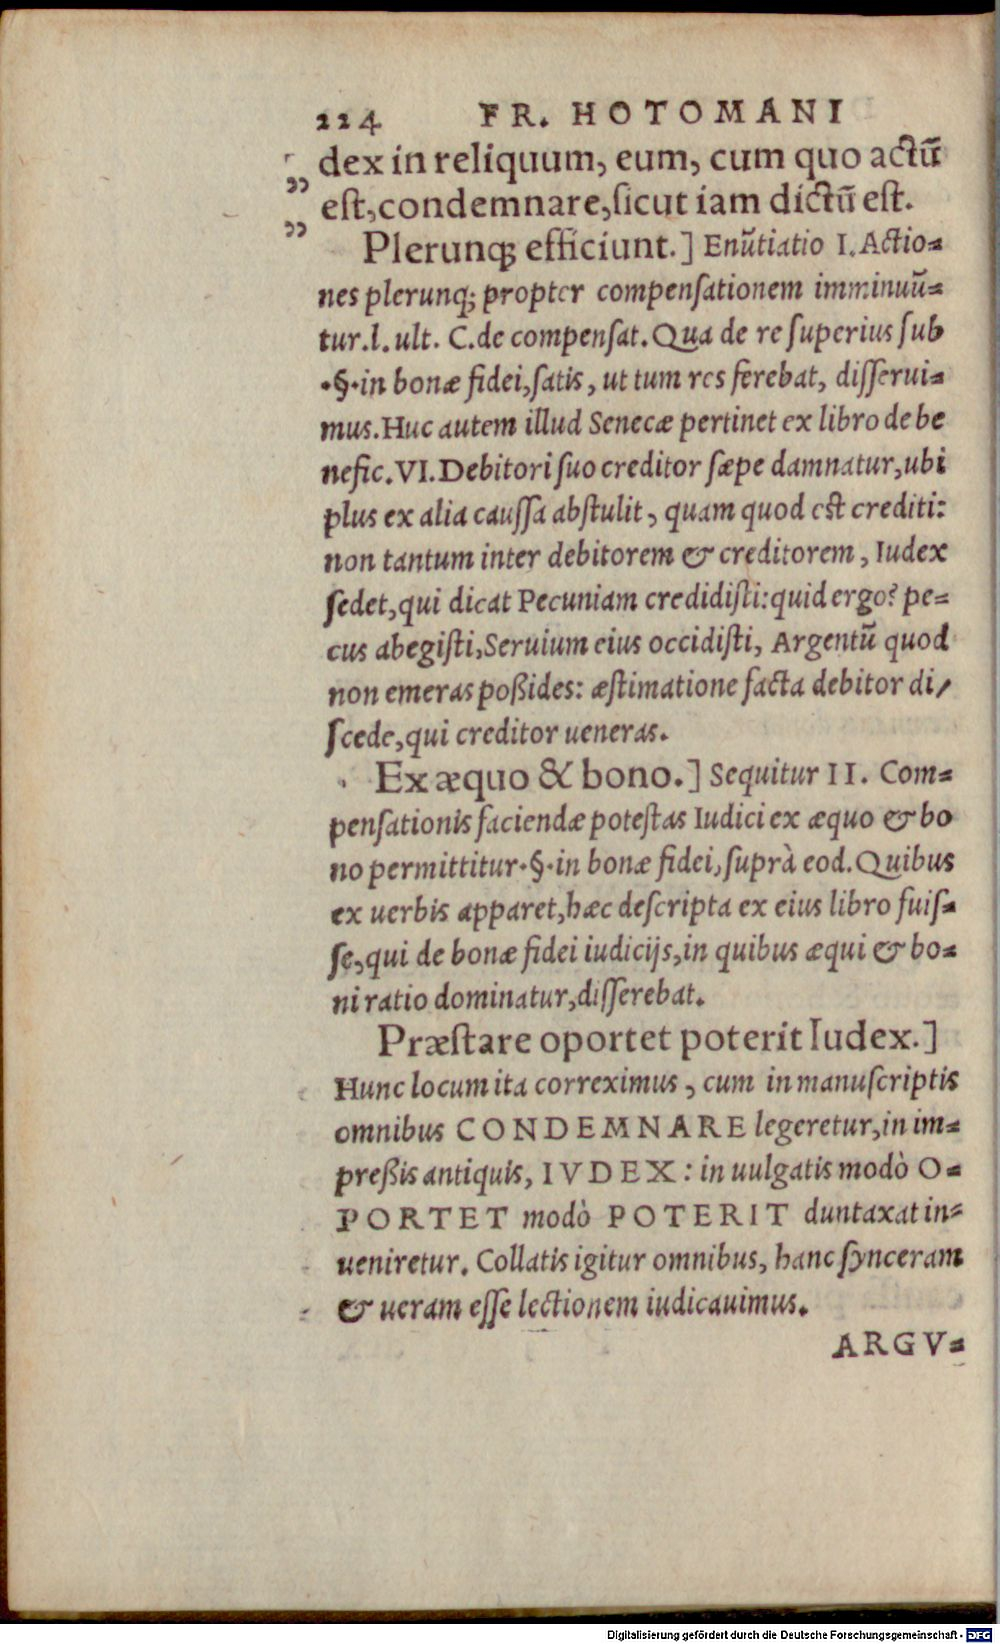 224 FR. HOTOMANI
dex in reliquum, eum, cum quo actū
est, condemnare, sicut iam dictū est.
Plerunq; efficiunt.] Enūtiatio I. Actio-
nes plerunq; propter compensationem imminuū-
tur. l. ult. C. de compensat. Qua de re superius sub
.§. in bonæ fidei, satis, ut tum res ferebat, disserui-
mus. Huc autem illud Senecæ pertinet ex libro de be
nefic. VI. Debitori suo creditor sæpe damnatur, ubi
plus ex alia caussa abstulit, quam quod est crediti:
non tantum inter debitorem & creditorem, Iudex
sedet, qui dicat Pecuniam credidisti: quid ergo? pe-
cus abegisti, Seruium eius occidisti, Argentū quod
non emeras poßides: æstimatione facta debitor di-
scede, qui creditor ueneras.
Ex æquo & bono.] Sequitur II. Com-
pensationis faciendæ potestas Iudici ex æquo & bo
no permittitur .§. in bonæ fidei, suprà eod. Quibus
ex uerbis apparet, hæc descripta ex eius libro fuis-
se, qui de bonæ fidei iudicijs, in quibus æqui & bo-
ni ratio dominatur, disserebat.
Præstare oportet poterit Iudex.]
Hunc locum ita correximus, cum in manuscriptis
omnibus CONDEMNARE legeretur, in im-
preßis antiquis, IVDEX: in uulgatis modò O-
PORTET modò POTERIT duntaxat in-
ueniretur. Collatis igitur omnibus, hanc synceram
& ueram esse lectionem iudicauimus.
ARGV-
Digitalisierung gefördert durch die Deutsche Forschungsgemeinschaft - DFG